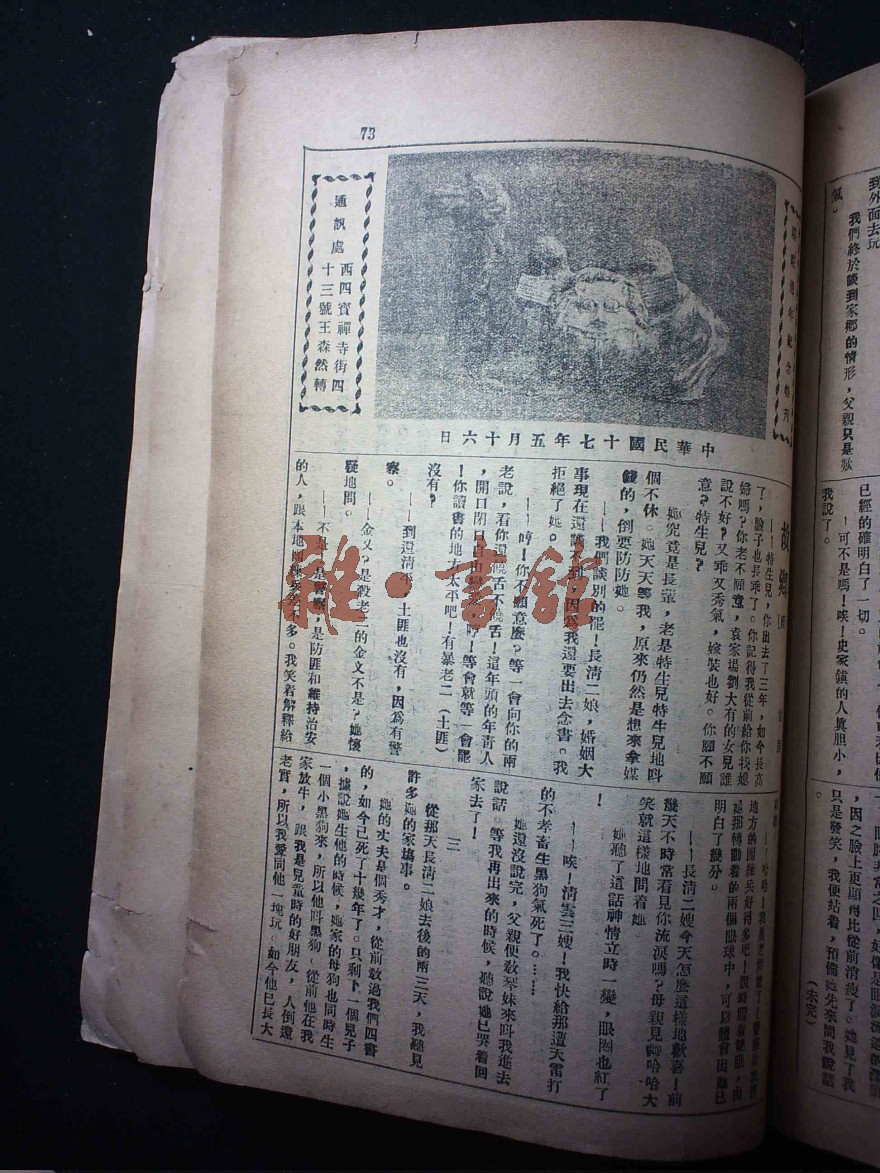 73
通訊處
西四寶禪寺街四
十三號王森然轉
中華民國十七年五月十六日
故鄉
——特生兒，你出去了三年，如今長高
了，臉子也長乖了。你記得我從前給你找媳
婦嗎？你老不願意，袁家場劉大有的女兒誰
說不好？又乖又秀氣，嫁裝也好。你願不願
意？特生兒？
她究竟是長輩，老是特生兒特生兒地叫
個不休。她天天等我，原來仍然是想來拿媒
錢的，倒要防防她。
——我們談別的罷！長清二娘，婚姻大
事現在還談不到，因為我還要出去念書。我
拒絕了她。
——哼！你不願意麽？等一會向你的兩
老說，看你還饒舌不饒舌！這年頭的年靑人
，開口閉口自由
！等會就等一會罷
！你讀書的地方太平吧！有暴老二（土匪）
沒有？
——到還清平，土匪也沒有，因為有警
察。
——金文？是殺老二的金文不是？她懷
疑地問。
是防匪和維持治安
的人，跟本地團練兵差不多。我笑着解釋給
地方的團練兵好得多吧！
她那轉動着的兩個眼球中，可以體會出她已
明白了幾分。
——長清二嫂今天怎麽這樣地歡喜！前
幾天不時常看見你流淚嗎？母親見她哈哈大
笑就這樣地問着她
她聽了這話神情立時一變，眼圈也紅了
！
——唉！清雲三嫂！我快給那遭天雷打
的不孝畜生黑狗氣死了。……
她還沒說完，父親便敎琴妹來叫我進去
說話。等我再出來的時候，聽說她已哭着回
家去了！
三
從那天長清二娘去後的兩三天，我聽見
許多她的家塲事。
她的丈夫是個秀才，從前敎過我們四書
的，如今已死了十幾年了。只剩下一個兒子
，據說她生他的時候，她家的母狗也同時生
一個小黑狗來，所以他叫黑狗。從前他在我
家放牛，跟我是兒童時的好朋友，人倒還
老實，所以我愛同他一塊玩。如今他已長大
到外面去玩
氣。
我們終於談到家鄉的情形，父親只是歎
已經的確明白了一切。
——可不是嗎！唉！史家鎮的人眞胆小，
我說了。
，因之臉上更顯得比從前消瘦了。她見了我
只是發笑，我便站着，預備她先來問我說話
（未完）
雜·書館